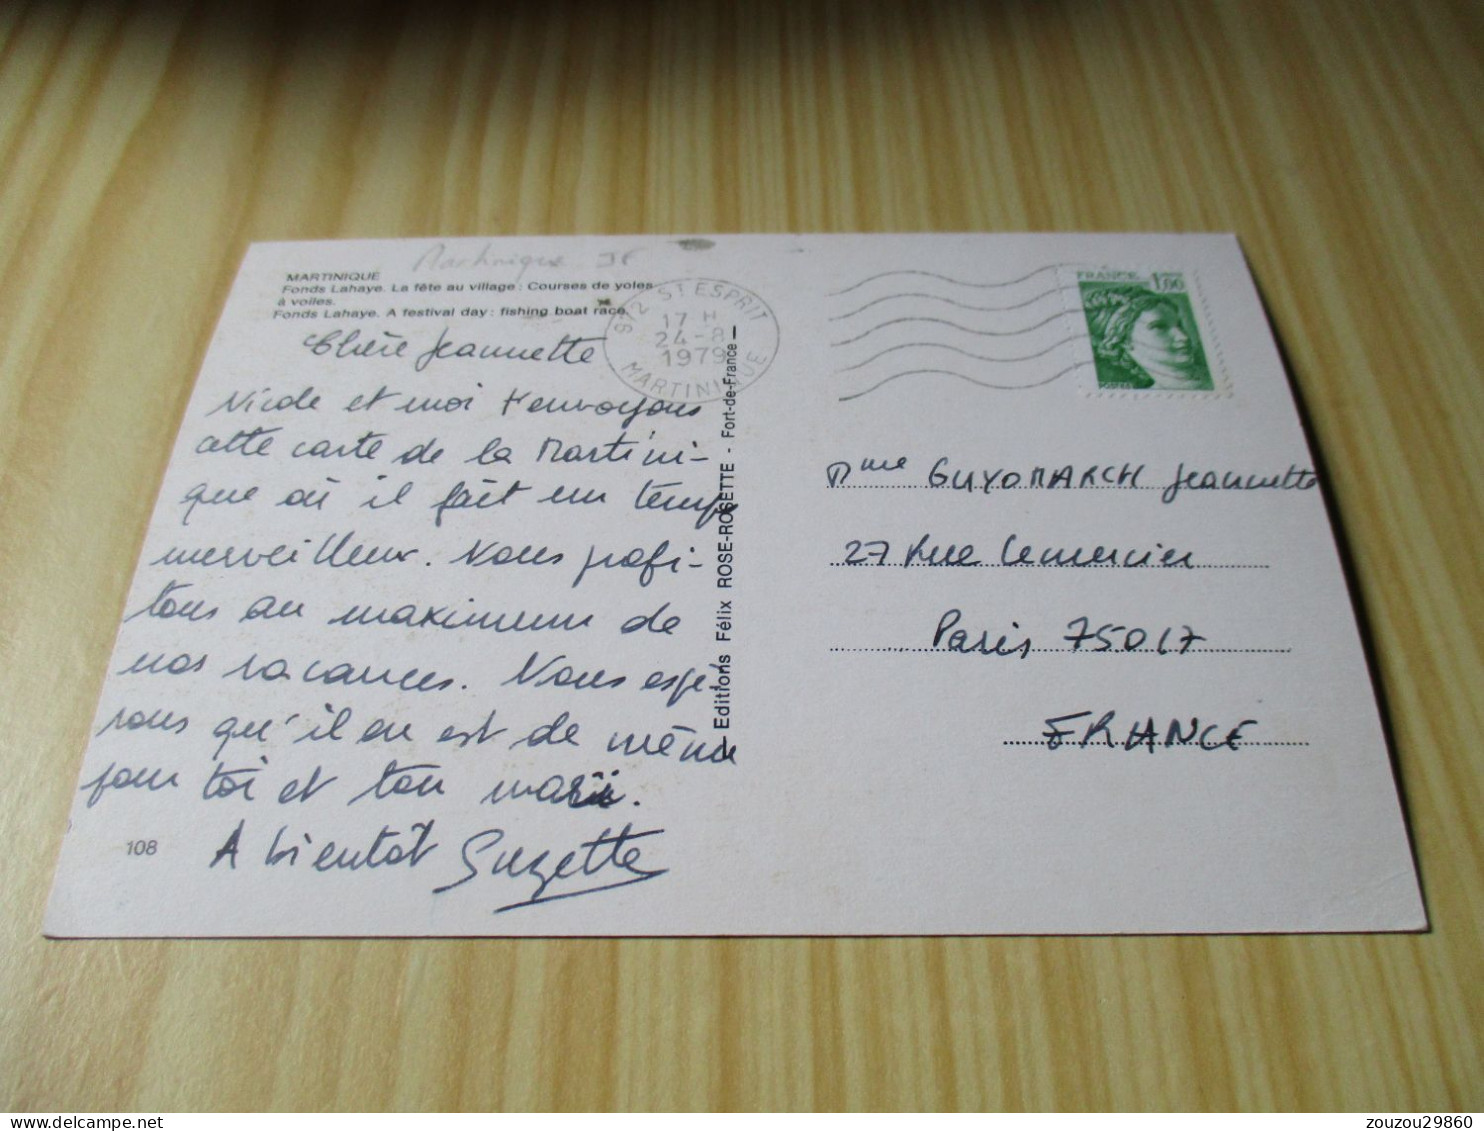 Martinique
MARTINIQUE
Fonds Lahaye. La fête au village : Courses de yoles
à voiles.
Fonds Lahaye. A festival day : fishing boat race.
Chère Jeannette
Nicole et moi t'envoyons
cette carte de la Martini-
que où il fait un temps
merveilleux. Nous profi-
tons au maximum de
nos vacances. Nous espé-
rons qu'il en est de même
pour toi et ton mari.
A bientôt Suzette
108
Editions Félix ROSE-ROSETTE - Fort-de-France
972 ST ESPRIT
17 H
24-8
1979
MARTINIQUE
FRANCE 1,00
POSTES
Mme GUYOMARCH Jeannette
27 Rue Lemercier
Paris 75017
FRANCE
zouzou29860